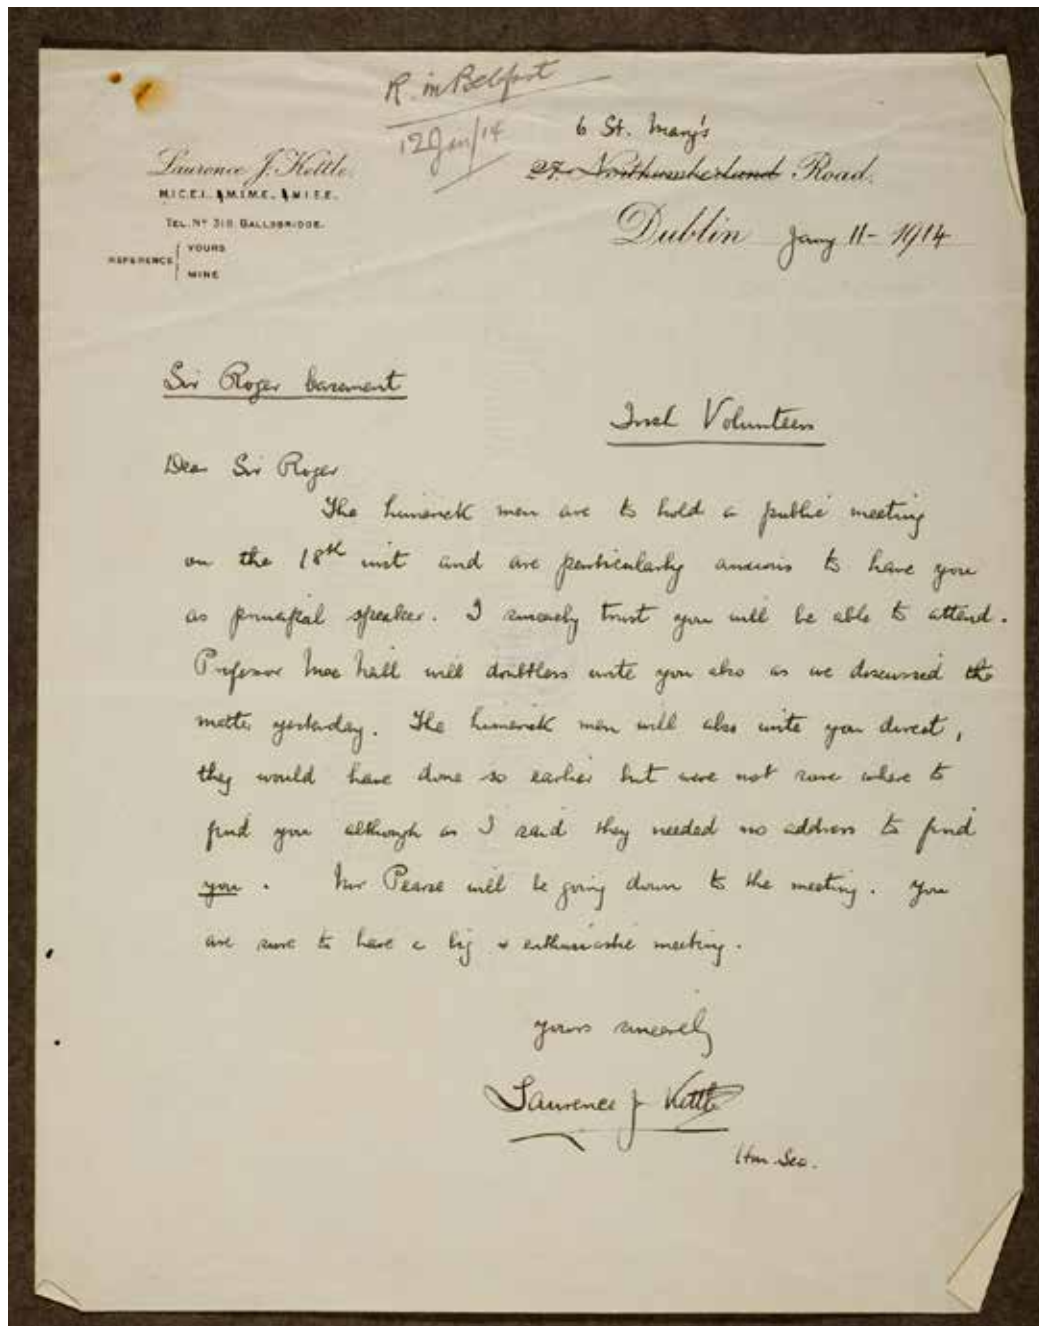 R. in Belfast
12 Jan/14
6 St. Mary's
27. Northumberland Road.
Dublin Jany 11 - 1914
Laurence J. Kettle.
M.I.C.E.I., M.I.M.E., M.I.E.E.
TEL. Nº 318 BALLSBRIDGE.
REFERENCE { YOURS
MINE
Sir Roger Casement
Irish Volunteers
Dear Sir Roger
The Limerick men are to hold a public meeting
on the 18th inst and are particularly anxious to have you
as principal speaker. I sincerely trust you will be able to attend.
Professor MacNeill will doubtless write you also as we discussed the
matter yesterday. The Limerick men will also write you direct,
they would have done so earlier but were not sure where to
find you although as I said they needed no address to find
you. Mr Pearse will be going down to the meeting. You
are sure to have a big & enthusiastic meeting.
Yours sincerely
Laurence J Kettle
Hon. Sec.